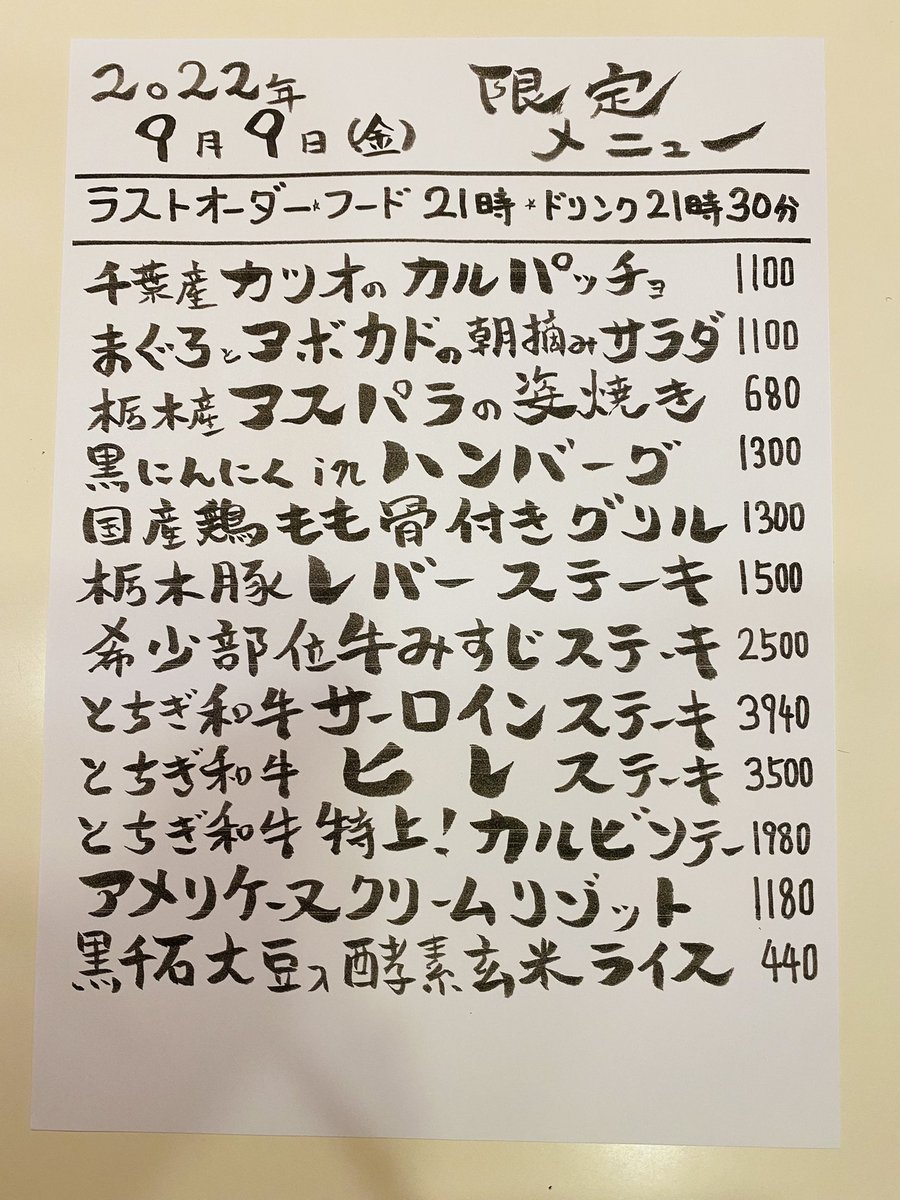 2022年 限定
9月9日(金) メニュー
ラストオーダー★フード 21時 ★ドリンク21時30分
千葉産カツオのカルパッチョ 1100
まぐろとアボカドの朝摘みサラダ 1100
栃木産アスパラの姿焼き 680
黒にんにくinハンバーグ 1300
国産鶏もも骨付きグリル 1300
栃木豚レバーステーキ 1500
希少部位牛みすじステーキ 2500
とちぎ和牛サーロインステーキ 3940
とちぎ和牛ヒレステーキ 3500
とちぎ和牛特上!カルビソテー 1980
アメリケーヌクリームリゾット 1180
黒千石大豆入酵素玄米ライス 440